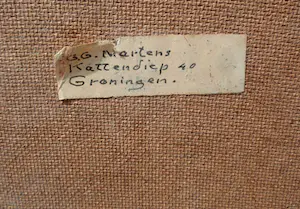 G.G. Martens
Kattendiep 40
Groningen.